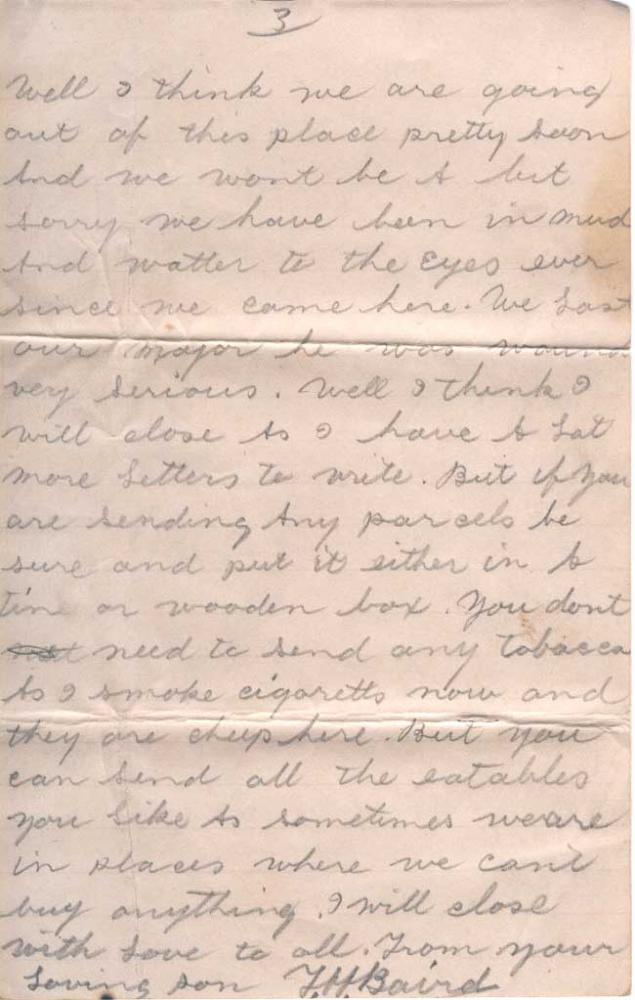 3
Well I think we are going
out of this place pretty soon
And we wont be A bit
sorry we have been in mud
And watter to the Eyes ever
since we came here. We Lost
our Major he was wound
very serious. Well I think I
will close As I have A Lot
more Letters to write. But if you
are sending Any parcels be
sure and put it either in A
tine or wooden box. You dont
need to send any tobacco
As I smoke cigaretts now and
they are cheep here. But you
can send all the eatables
you Like As sometimes weare
in places where we cant
buy anything. I will close
with Love to all. From your
Loving son F.H. Baird